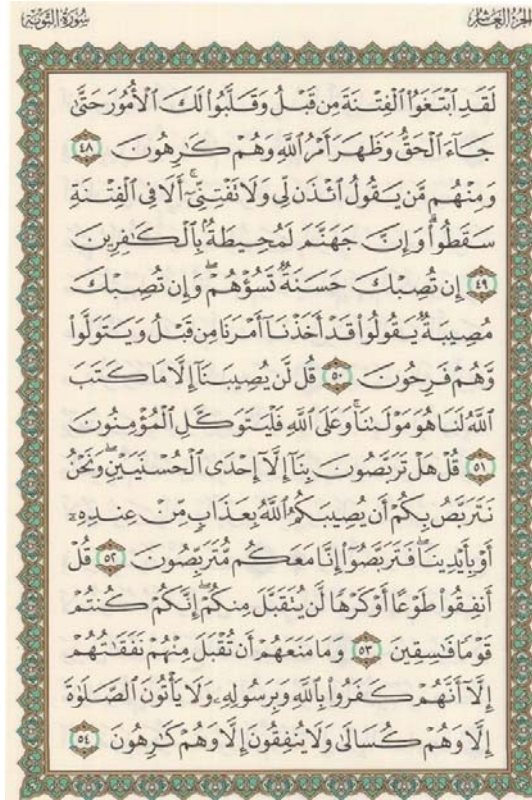 الجزء العاشر
سورة التوبة
لَقَدِ ٱبۡتَغَوُاْ ٱلۡفِتۡنَةَ مِن قَبۡلُ وَقَلَّبُواْ لَكَ ٱلۡأُمُورَ حَتَّىٰ
جَآءَ ٱلۡحَقُّ وَظَهَرَ أَمۡرُ ٱللَّهِ وَهُمۡ كَٰرِهُونَ ٤٨
وَمِنۡهُم مَّن يَقُولُ ٱئۡذَن لِّي وَلَا تَفۡتِنِّيٓۚ أَلَا فِي ٱلۡفِتۡنَةِ
سَقَطُواْۗ وَإِنَّ جَهَنَّمَ لَمُحِيطَةُۢ بِٱلۡكَٰفِرِينَ
٤٩ إِن تُصِبۡكَ حَسَنَةٞ تَسُؤۡهُمۡۖ وَإِن تُصِبۡكَ
مُصِيبَةٞ يَقُولُواْ قَدۡ أَخَذۡنَآ أَمۡرَنَا مِن قَبۡلُ وَيَتَوَلَّواْ
وَّهُمۡ فَرِحُونَ ٥٠ قُل لَّن يُصِيبَنَآ إِلَّا مَا كَتَبَ
ٱللَّهُ لَنَا هُوَ مَوۡلَىٰنَاۚ وَعَلَى ٱللَّهِ فَلۡيَتَوَكَّلِ ٱلۡمُؤۡمِنُونَ
٥١ قُلۡ هَلۡ تَرَبَّصُونَ بِنَآ إِلَّآ إِحۡدَى ٱلۡحُسۡنَيَيۡنِۖ وَنَحۡنُ
نَتَرَبَّصُ بِكُمۡ أَن يُصِيبَكُمُ ٱللَّهُ بِعَذَابٖ مِّنۡ عِندِهِۦٓ
أَوۡ بِأَيۡدِينَاۖ فَتَرَبَّصُوٓاْ إِنَّا مَعَكُم مُّتَرَبِّصُونَ ٥٢ قُلۡ
أَنفِقُواْ طَوۡعًا أَوۡ كَرۡهٗا لَّن يُتَقَبَّلَ مِنكُمۡ إِنَّكُمۡ كُنتُمۡ
قَوۡمٗا فَٰسِقِينَ ٥٣ وَمَا مَنَعَهُمۡ أَن تُقۡبَلَ مِنۡهُمۡ نَفَقَٰتُهُمۡ
إِلَّآ أَنَّهُمۡ كَفَرُواْ بِٱللَّهِ وَبِرَسُولِهِۦ وَلَا يَأۡتُونَ ٱلصَّلَوٰةَ
إِلَّا وَهُمۡ كُسَالَىٰ وَلَا يُنفِقُونَ إِلَّا وَهُمۡ كَٰرِهُونَ ٥٤